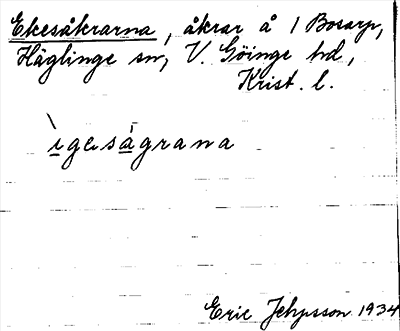 Ekesåkrarna, åkrar å 1 Bosarp,
Häglinge sn, V. Göinge hd,
Krist. l.
ìgesàgrana
Eric Jehpsson 1934